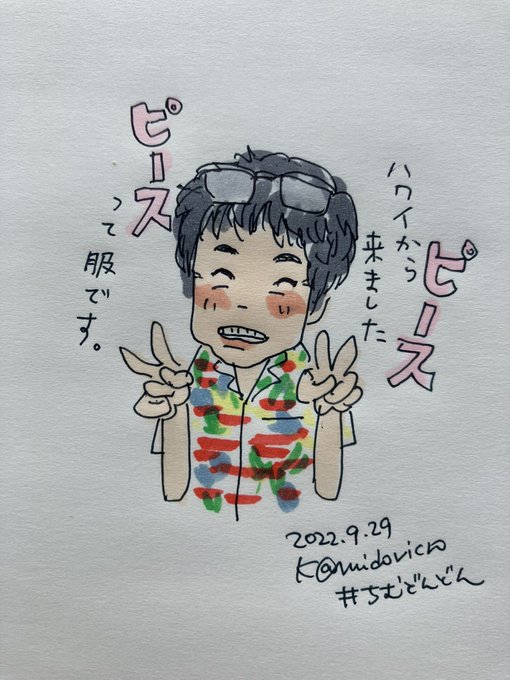 ピース
ハワイから
来ました
ピース
って服です。
2022.9.29
K@midoricro
#ちむどんどん